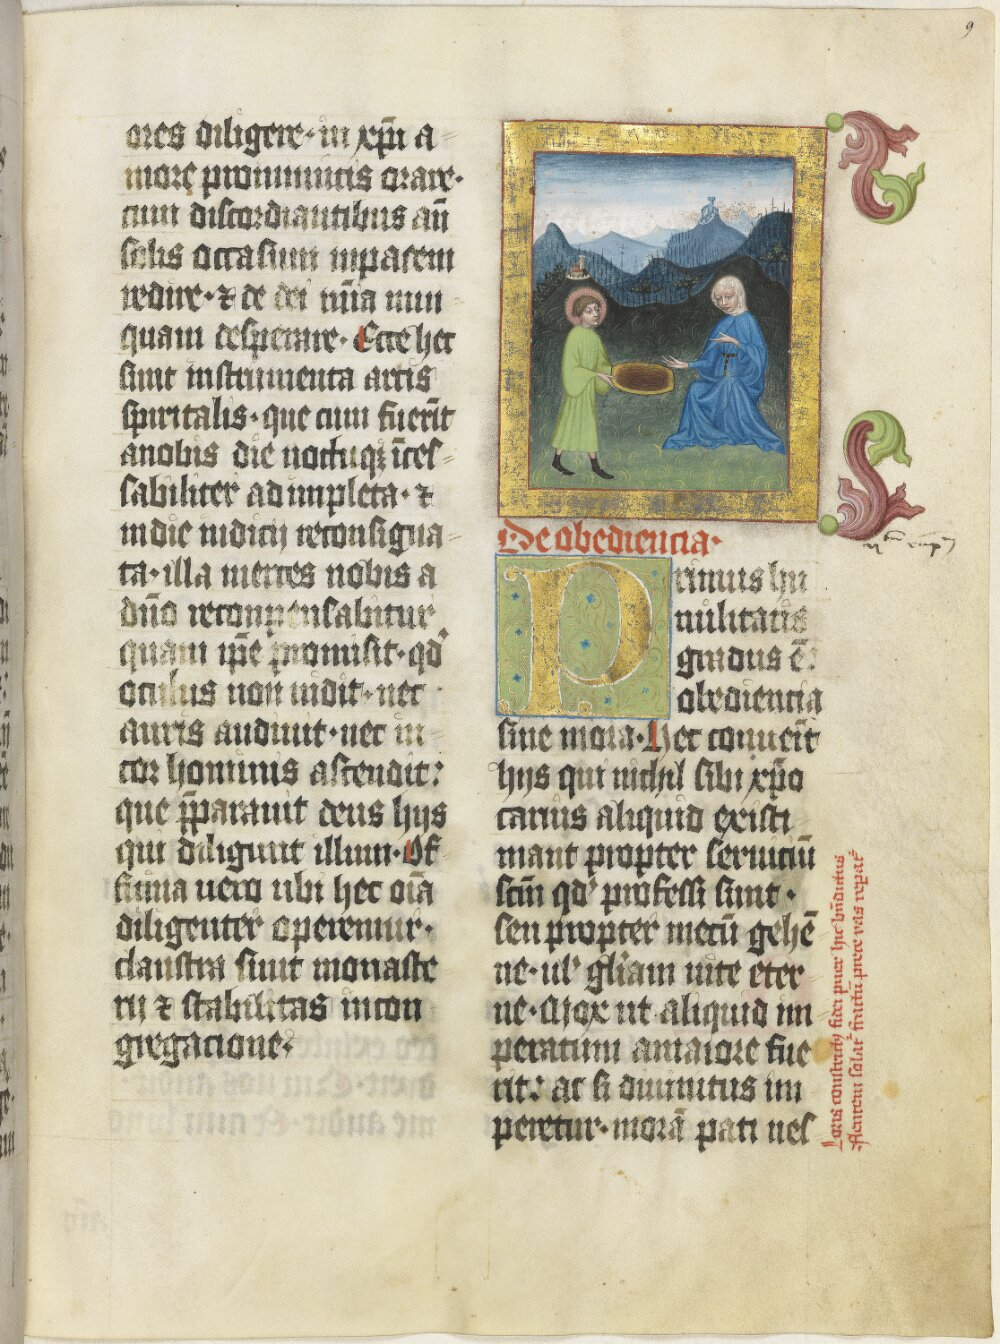 9
ores diligere· in xp̄i a-
more pro inimicis orare·
cum discordiantibus an̄
solis occasum in pacem
redire· ⁊ de dei mīa nun
quam desperare· Ecce hec
sunt instrumenta artis
spiritalis· que cum fuerīt
a nobis die noctuqꝫ īces-
sabiliter ad impleta· ⁊
in die iudicii reconsigna-
ta· illa merces nobis a
dn̄o recompensabitur
quam ip̄e promisit· qd̓
oculus non uidit· nec
auris audiuit· nec in
cor hominis ascendit:
que p̄parauit deus hijs
qui diligunt illum· Of-
ficina uero ubi hec om̄ia
diligenter operemur·
claustra sunt monaste
rii ⁊ stabilitas in con
gregacione·
De obediencia·
Primus hu
militatis
gradus ē:
obediencia
sine mora· Hec conuenīt
hijs qui nichil sibi xp̄o
carius aliquid existi
mant propter seruiciū
scm̄ qd̓ professi sunt·
seu propter metū gehē
ne· ul̓ gl̄iam uite eter
ne· Mox ut aliquid im
peratum a maiore fue
rit: ac si diuinitus im
peretur· morā pati nes
Loris constricti fidei puer hic bn̄dictus
Flentem solat̓ fractū prece vas repat̓